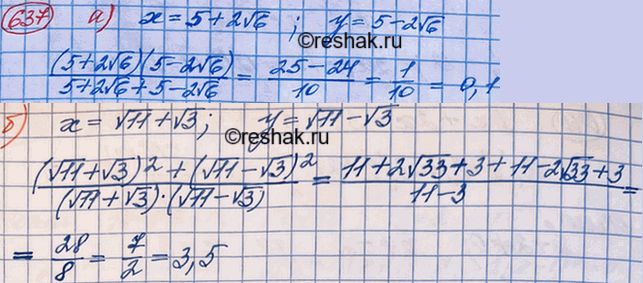 637 а) x = 5 + 2√6 ; y = 5 - 2√6
©reshak.ru
(5+2√6)(5-2√6)/(5+2√6+5-2√6) = (25-24)/10 = 1/10 = 0,1
б) x = √11 + √3; y = √11 - √3
©reshak.ru
((√11+√3)² + (√11-√3)²)/((√11+√3)·(√11-√3)) = (11+2√33+3+11-2√33+3)/(11-3) =
= 28/8 = 7/2 = 3,5